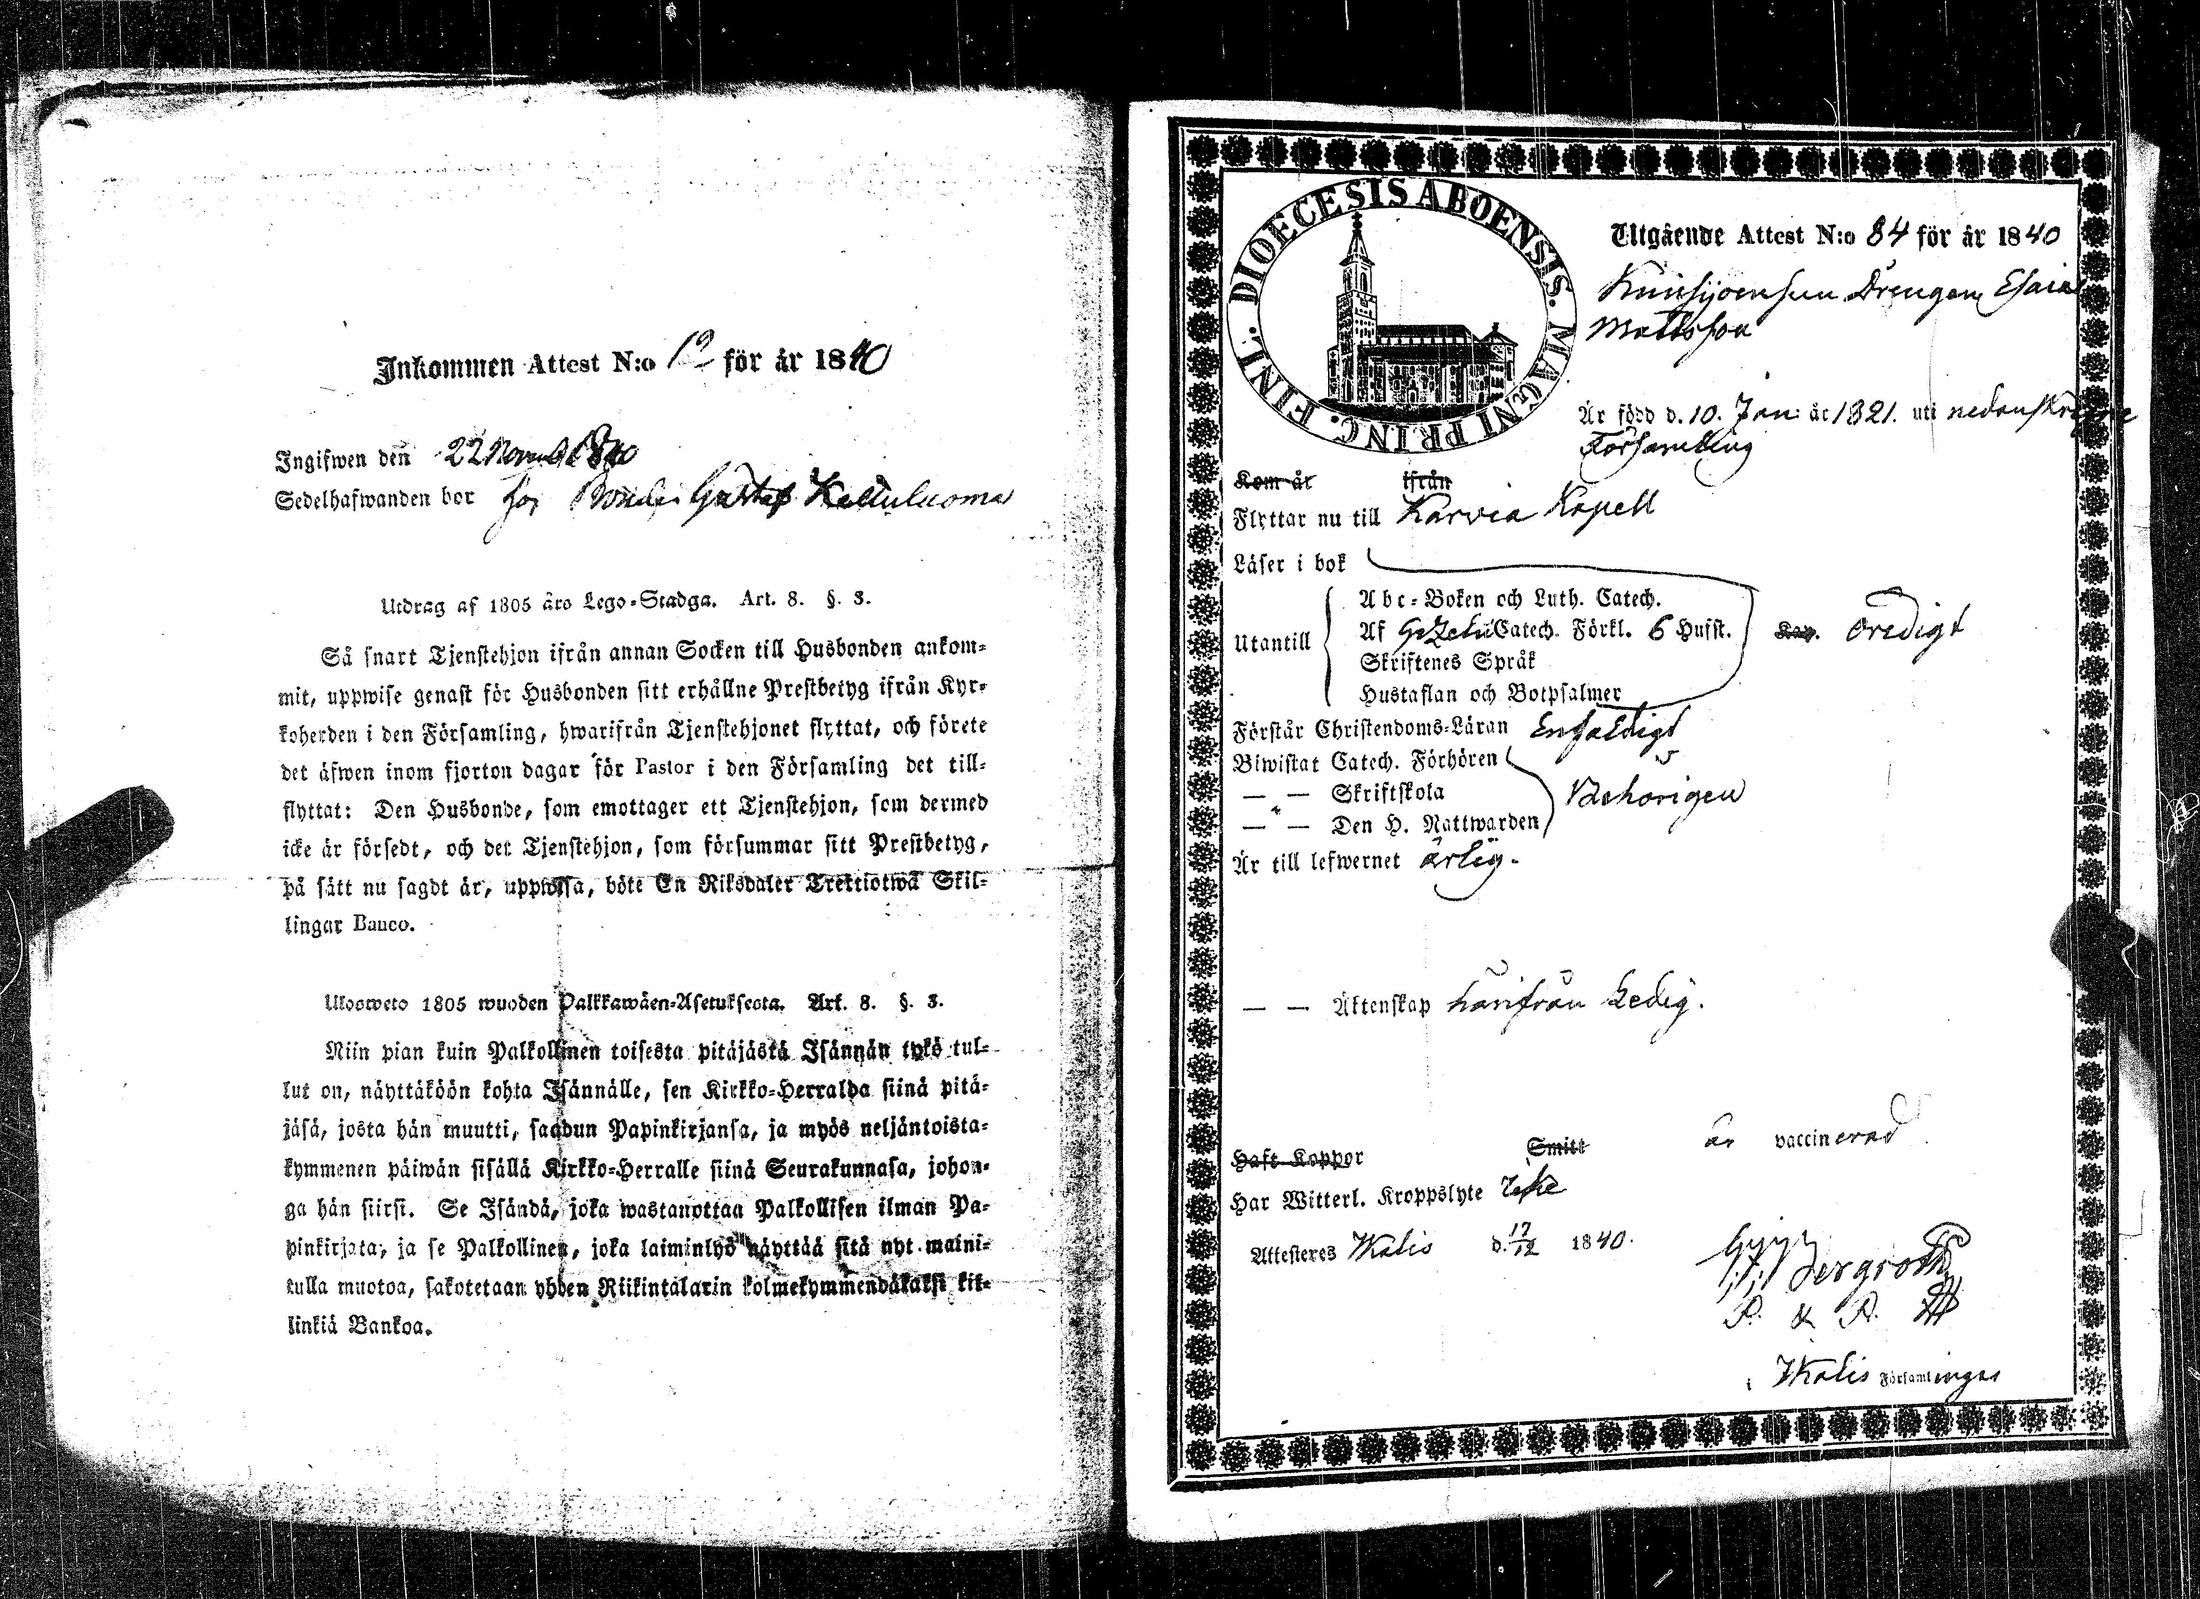 Inkommen Attest N:o 19 för år 1840
Ingifwen den 22 Novemb 1840
Sedelhafwanden bor hos Bonden Gustaf
Utdrag af 1805 års Lego-Stadga. Art. 8. §. 3.
Så snart Tjenstehjon ifrån annan Socken till Husbonden ankom-
mit, uppwise genast för Husbonden sitt erhållne Prestbetyg ifrån Kyr-
koherden i den Församling, hwarifrån Tjenstehjonet flyttat, och förete
det äfwen inom fjorton dagar för Pastor i den Församling det till-
flyttat: Den Husbonde, som emottager ett Tjenstehjon, som dermed
icke är försedt, och det Tjenstehjon, som försummar sitt Prestbetyg,
på sätt nu sagdt är, uppwisa, böte En Riksdaler Trettiotwå Skil-
lingar Banco.
Ulosweto 1805 wuoden Palkkawäen-Asetuksesta. Art. 8. §. 3.
Niin pian kuin Palkollinen toisesta pitäjästä Isännän tykö tul-
lut on, näyttäköön kohta Isännälle, sen Kirkko-Herralda siinä pitä-
jäsä, josta hän muutti, saadun Papinkirjansa, ja myös neljäntoista-
kymmenen päiwän sisällä Kirkko-Herralle siinä Seurakunnasa, johon-
ga hän siirsi. Se Isändä, joka wastanottaa Palkollisen ilman Pa-
pinkirjata, ja se Palkollinen, joka laiminlyö näyttää sitä nyt maini-
tulla muotoa, sakotetaan yhden Riikintalarin kolmekymmendäkaksi kil-
linkiä Bankoa.
DIOECESIS ABOENSIS. MAGNI PRINC. FINL.
Utgående Attest N:o 84 för år 1840
Drengen Esaias
Mattsson
Är född d. 10. Jan: år 1821. uti nedanskrefne
Församling
Kom år ifrån
Flyttar nu till Karvia Kapell
Läser i bok
Utantill
Abc-Boken och Luth. Catech.
Af Gezelii Catech. Förkl. 6 Hufst. Kap. oredigt
Skriftenes Språk
Hustaflan och Botpsalmer
Förstår Christendoms-Läran Enfaldigt
Biwistat Catech. Förhören
— " — Skriftskola Behörigen
— — Den H. Nattwarden
Är till lefwernet ärlig.
— — Äktenskap härifrån Ledig.
Haft Koppor Smitt är vaccinerad
Har Witterl. Kroppslyte Icke
Attesteras Ikalis d. 17/12 1840.
Bergroth
P. & P.
i Ikalis Församlingar